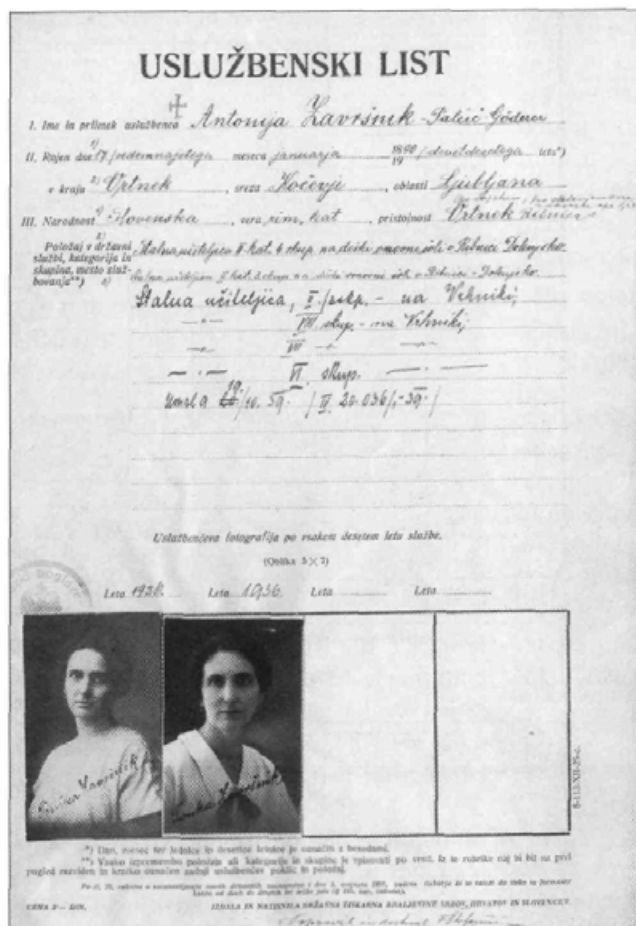 USLUŽBENSKI LIST
I. Ime in priimek uslužbenca Antonija Završnik-
II. Rojen dne 17./ sedemnajstega meseca januarja 1890 / 19 / devetdesetega leta*)
v kraju Vrtnek, sreza Kočevje, oblasti Ljubljana
III. Narodnost Slovenska, vera rim. kat. pristojnost Vrtnek
Položaj v državni službi, kategorija in skupina, mesto službovanja**)
Stalna učiteljica II. kat. 4. skup. na deški osnovni šoli v Ribnici Dolenjsko.
Stalna učiteljica II. kat. 3. skup. na deški osnovni šoli v Ribnici - Dolenjsko.
Stalna učiteljica, I./ skp. - na Vrhniki,
VIII. skup. - na Vrhniki,
VII
VI. skup.
Umrla 19./10. 39. / II 20.036/1-39./
Uslužbenčeva fotografija po vsakem desetem letu službe.
(Oblika 5 × 7)
Leta 1928. Leta 1936. Leta Leta
Završnik
Završnik
*) Dan, mesec ter letnico in desetice letnice je označiti z besedami.
**) Vsako izpremembo položaja ali kategorije in skupine je vpisovati po vrsti. Iz te rubrike naj bi bil na prvi
pogled razviden in kratko označen zadnji uslužbenčev poklic in položaj.
CENA 2 — DIN. IZDALA IN NATISNILA DRŽAVNA TISKARNA KRALJEVINE SRBOV, HRVATOV IN SLOVENCEV.